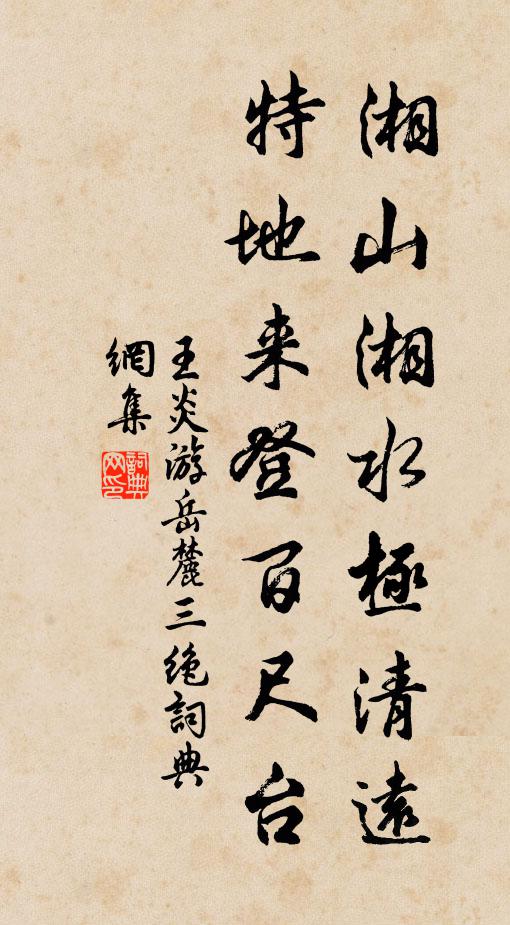 湘山湘水極清遠
特地来登百尺台
王炎游岳麓三绝詞典
網集
詞典網印